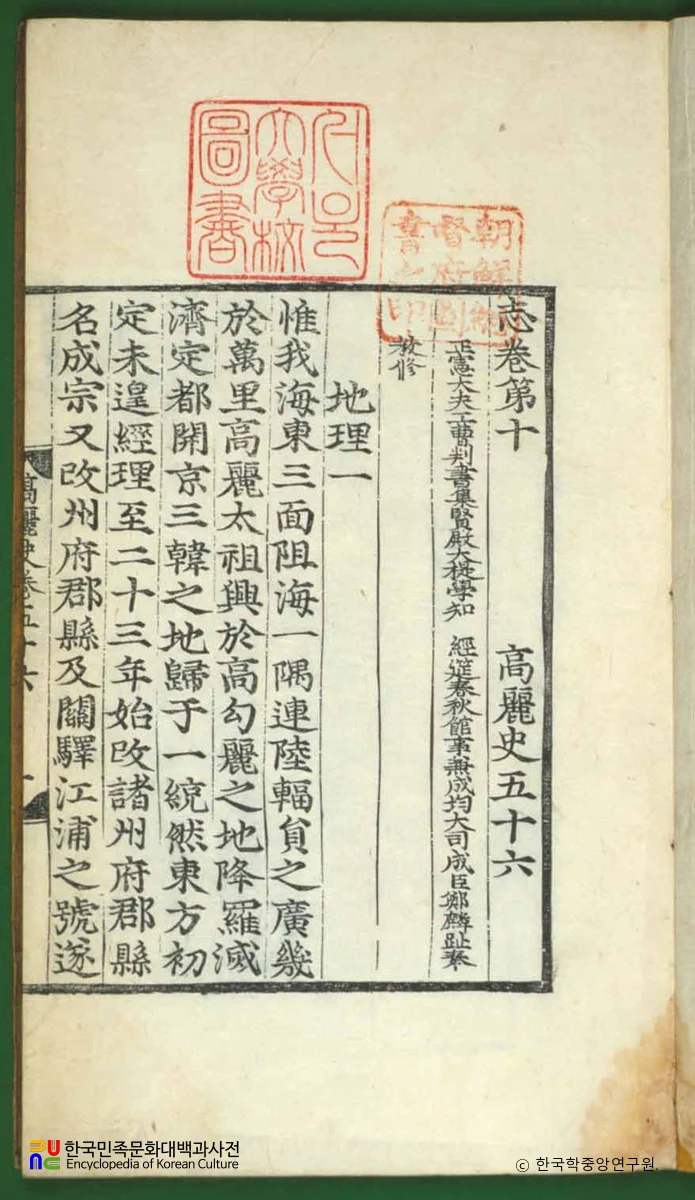 志卷第十 高麗史五十六
正憲大夫工曹判書集賢殿大提學知 經筵春秋館事兼成均大司成臣鄭麟趾奉
敎修
地理一
惟我海東三面阻海一隅連陸輻員之廣幾
於萬里高麗太祖興於高勾麗之地降羅滅
濟定都開京三韓之地歸于一統然東方初
定未遑經理至二十三年始改諸州府郡縣
名成宗又改州府郡縣及關驛江浦之號遂
高麗史卷五十六 一
朝鮮總
督府圖
書之印
大學校
圖書
한국민족문화대백과사전
Encyclopedia of Korean Culture
ⓒ 한국학중앙연구원